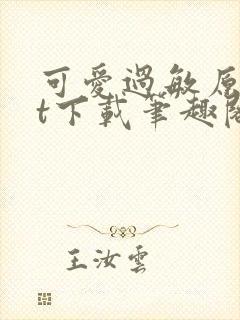 可愛過敏原
t下載筆趣閣
王汝雲